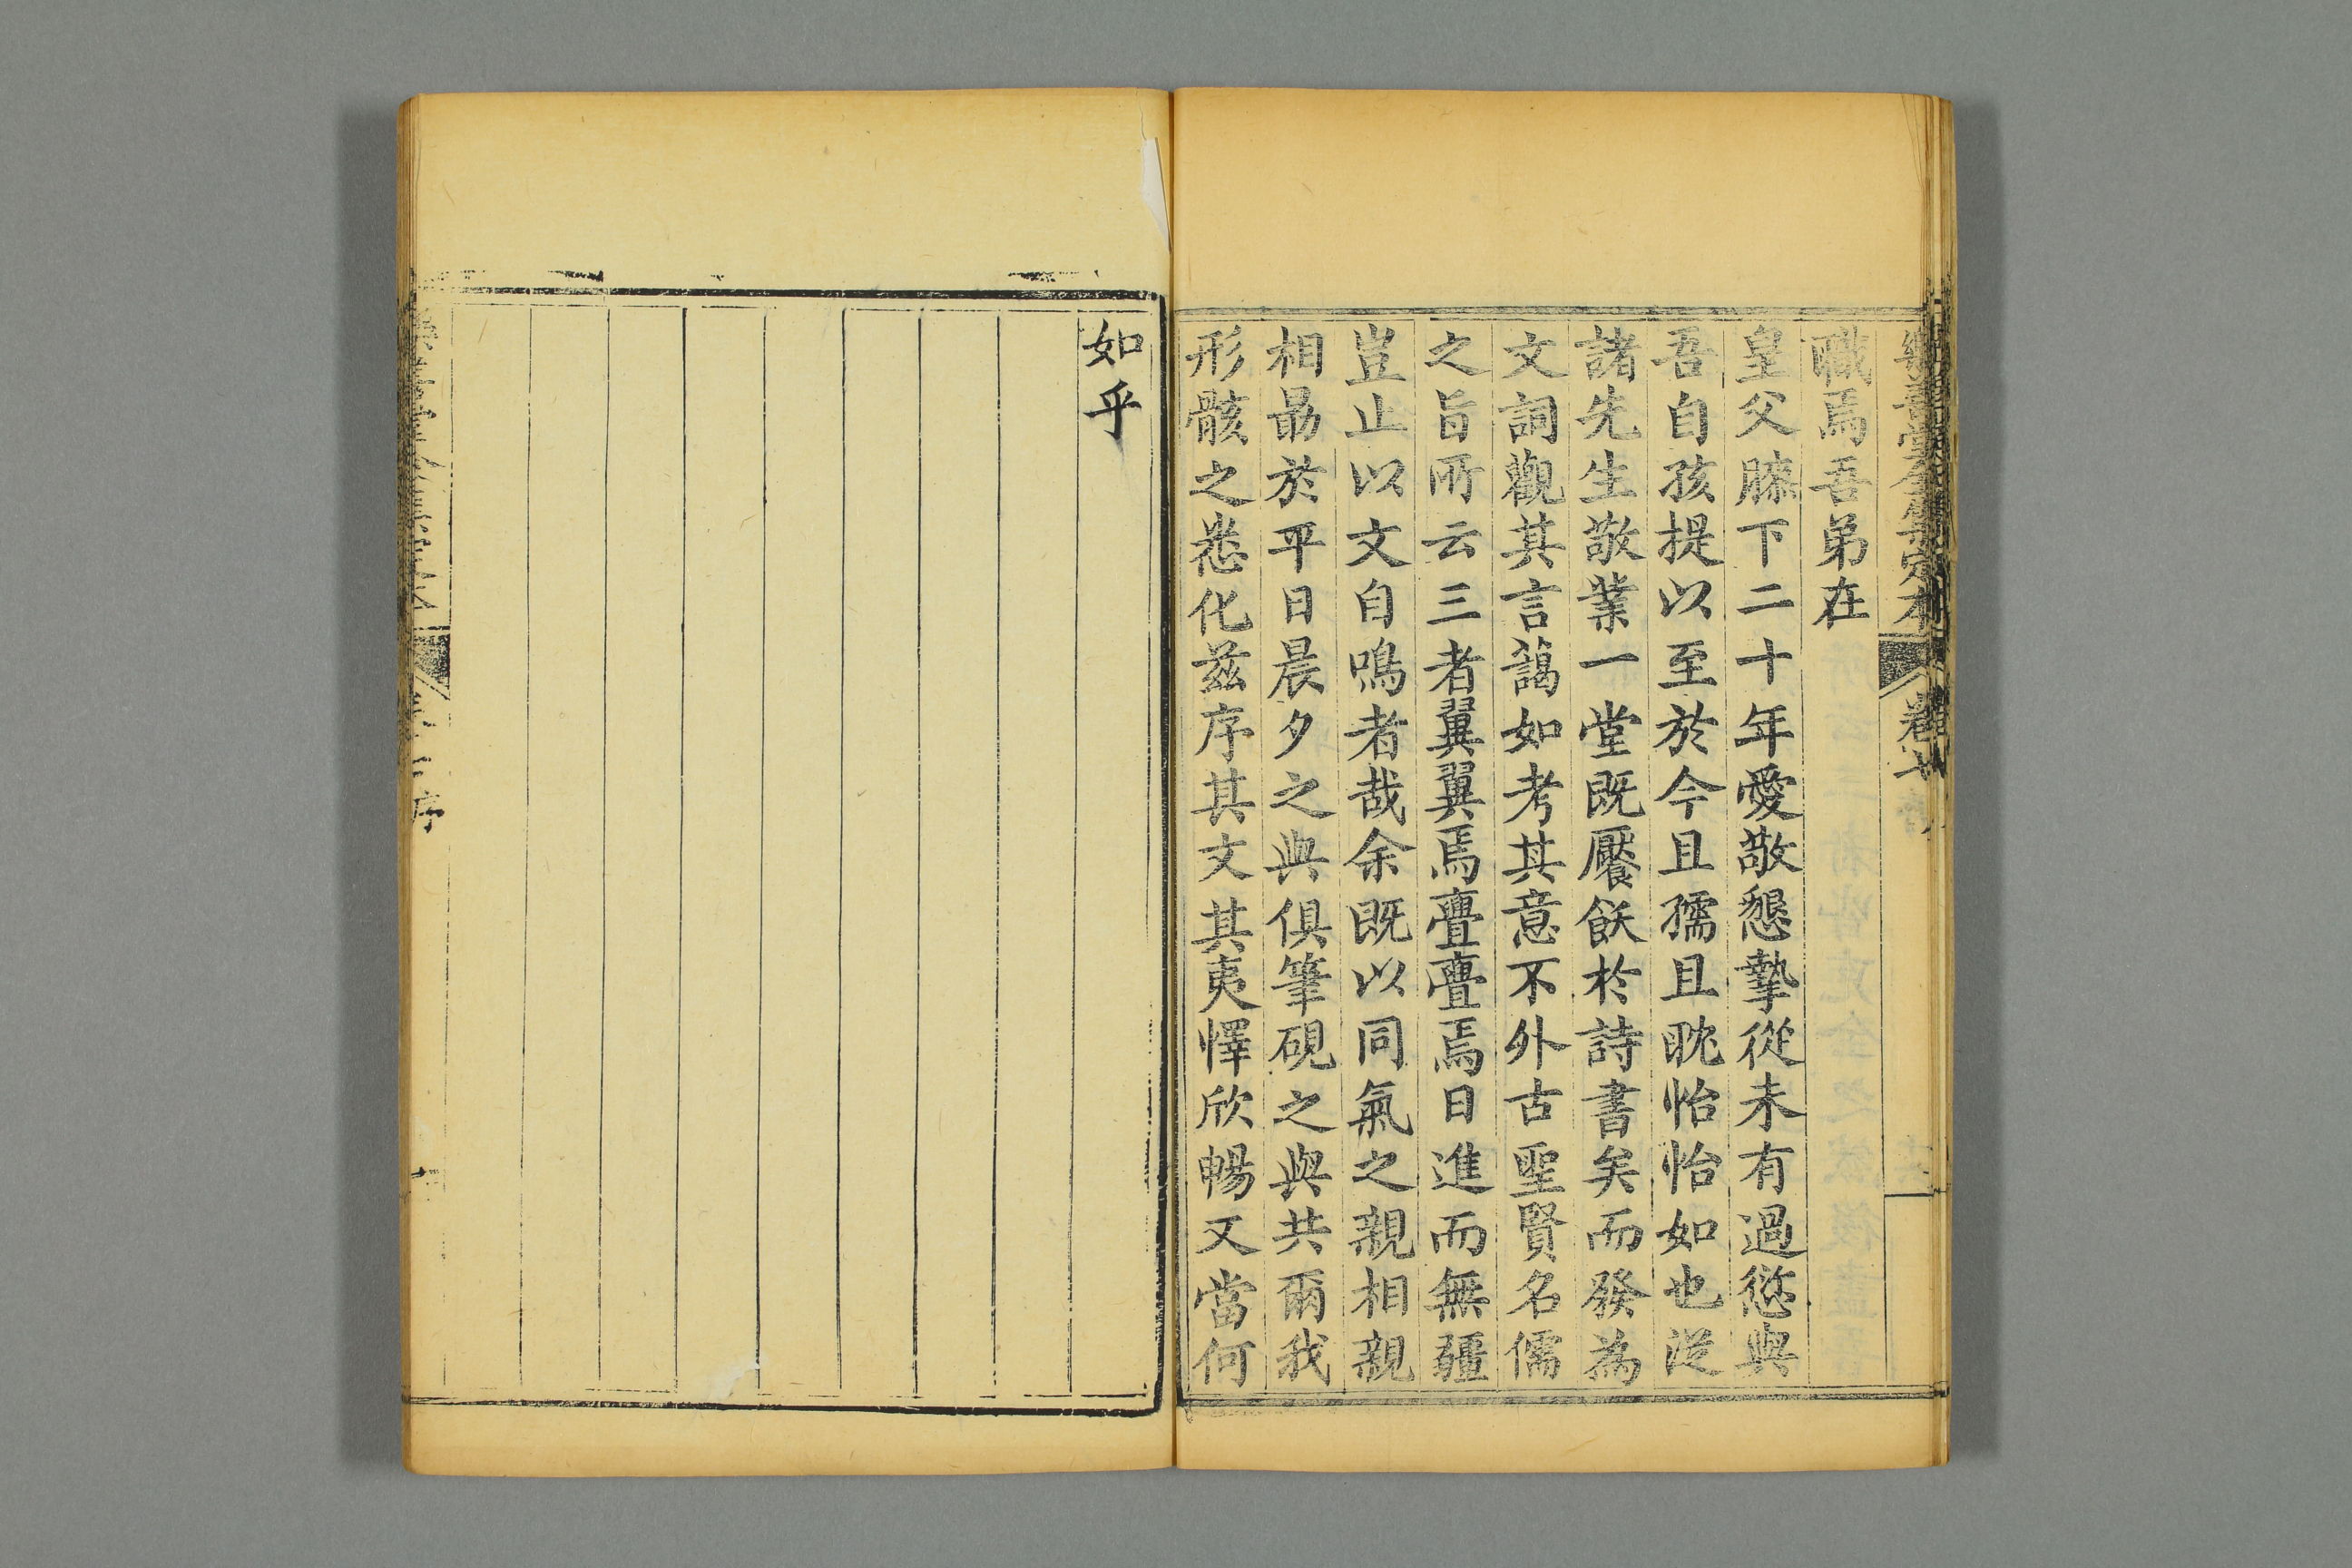 樂善堂全集定本
卷七
職焉吾弟在
皇父膝下二十年愛敬懇摯從未有過愆與
吾自孩提以至於今且孺且耽怡怡如也從
諸先生敬業一堂既饜飫於詩書矣而發為
文詞觀其言藹如考其意不外古聖賢名儒
之旨所云三者翼翼焉亹亹焉日進而無疆
豈止以文自鳴者哉余既以同氣之親相親
相勗於平日晨夕之與俱筆硯之與共爾我
形骸之悉化茲序其文其夷懌欣暢又當何
如乎
序